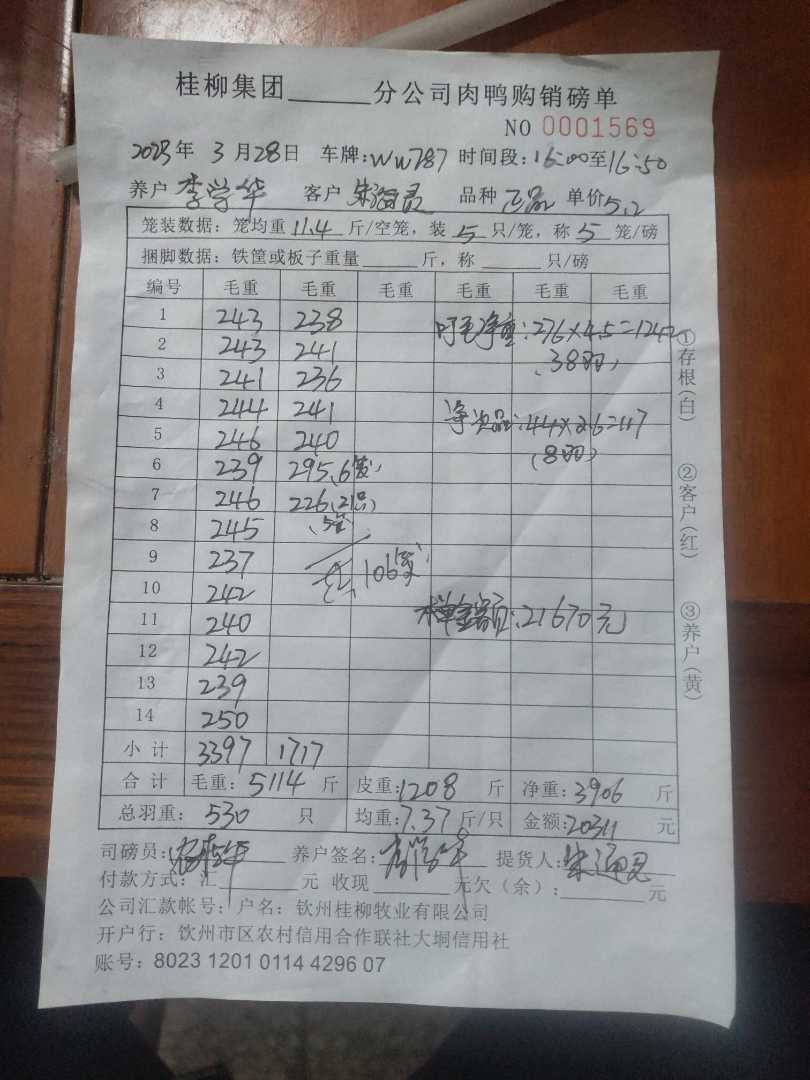 桂柳集团______分公司肉鸭购销磅单
NO 0001569
2023年 3月28日 车牌:WW787 时间段:16:00至16:50
养户 李学华 客户 品种 正品 单价5.2
笼装数据: 笼均重 11.4 斤/空笼, 装 5 只/笼, 称 5 笼/磅
捆脚数据: 铁筐或板子重量______斤, 称______只/磅
编号 毛重 毛重 毛重 毛重 毛重 毛重
1 243 238
净重:276×4.5=1242
2 243 241
(38羽)
3 241 236
4 244 241
次品:44×2.6=117
5 246 240
(8羽)
6 239 295(6笼)
7 246 226(21只)
8 245 (5笼)
9 237
106笼
10 242
11 240
单金额:21670元
12 242
13 239
14 250
小 计 3397 1717
合 计 毛重: 5114 斤 皮重:1208 斤 净重:3906 斤
总羽重: 530 只 均重:7.37斤/只 金额:20311 元
司磅员: 养户签名: 提货人:
付款方式: 汇______元 收现______元欠(余):______元
公司汇款帐号: 户名: 钦州桂柳牧业有限公司
开户行: 钦州市区农村信用合作联社大垌信用社
账号: 8023 1201 0114 4296 07
①存根(白)
②客户(红)
③养户(黄)